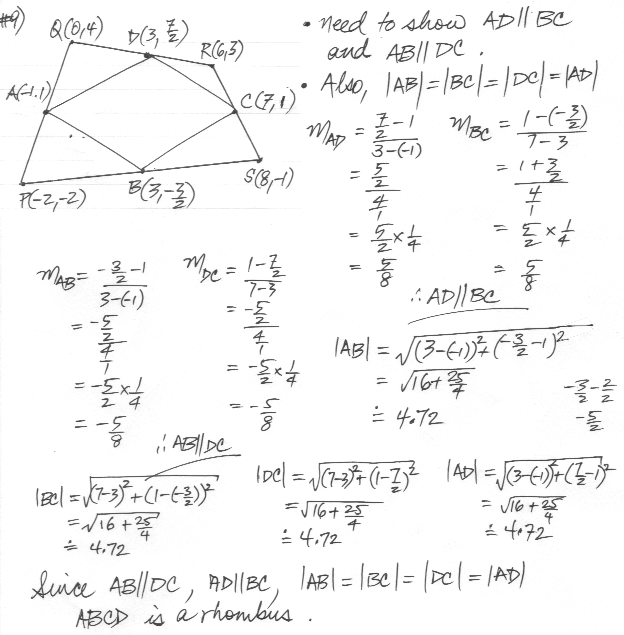 #9)
Q(0,4) D(3, 7/2)
R(6,3)
A(-1,1) C(7,1)
P(-2,-2) B(3,-3/2) S(8,-1)
• need to show AD∥BC
and AB∥DC.
• Also, |AB|=|BC|=|DC|=|AD|
m_AD = (7/2-1)/(3-(-1))
= (5/2)/(4/1)
= 5/2 × 1/4
= 5/8
m_BC = (1-(-3/2))/(7-3)
= (1+3/2)/(4/1)
= 5/2 × 1/4
= 5/8
∴ AD∥BC
m_AB = (-3/2-1)/(3-(-1))
= (-5/2)/(4/1)
= -5/2 × 1/4
= -5/8
m_DC = (1-7/2)/(7-3)
= (-5/2)/(4/1)
= -5/2 × 1/4
= -5/8
∴ AB∥DC
|AB| = √((3-(-1))²+(-3/2-1)²)
= √(16+25/4)
≐ 4.72
-3/2-2/2
-5/2
|BC| = √((7-3)²+(1-(-3/2))²)
= √(16+25/4)
≐ 4.72
|DC| = √((7-3)²+(1-7/2)²)
= √(16+25/4)
≐ 4.72
|AD| = √((3-(-1))²+(7/2-1)²)
= √(16+25/4)
≐ 4.72
Since AB∥DC, AD∥BC, |AB|=|BC|=|DC|=|AD|
ABCD is a rhombus.